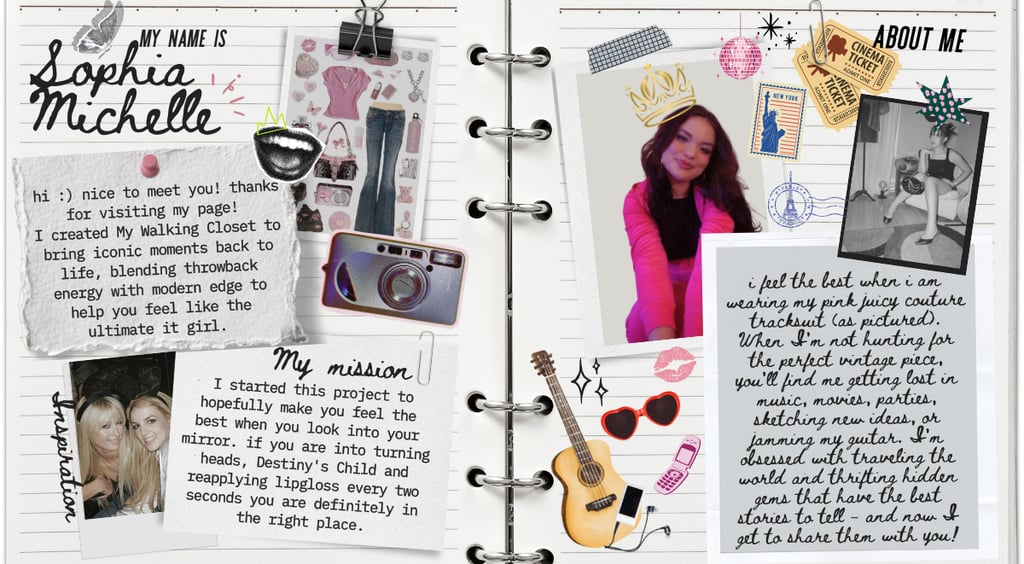 MY NAME IS
Sophia
Michelle
hi :) nice to meet you! thanks
for visiting my page!
I created My Walking Closet to
bring iconic moments back to
life, blending throwback
energy with modern edge to
help you feel like the
ultimate it girl.
Inspiration
My mission
I started this project to
hopefully make you feel the
best when you look into your
mirror. if you are into turning
heads, Destiny's Child and
reapplying lipgloss every two
seconds you are definitely in
the right place.
ABOUT ME
CINEMA
TICKET
ADMIT ONE
CINEMA
TICKET
ADMIT ONE
NEW YORK
i feel the best when i am
wearing my pink juicy couture
tracksuit (as pictured).
When I'm not hunting for
the perfect vintage piece,
you'll find me getting lost in
music, movies, parties,
sketching new ideas, or
jamming my guitar. I'm
obsessed with traveling the
world and thrifting hidden
gems that have the best
stories to tell – and now I
get to share them with you!